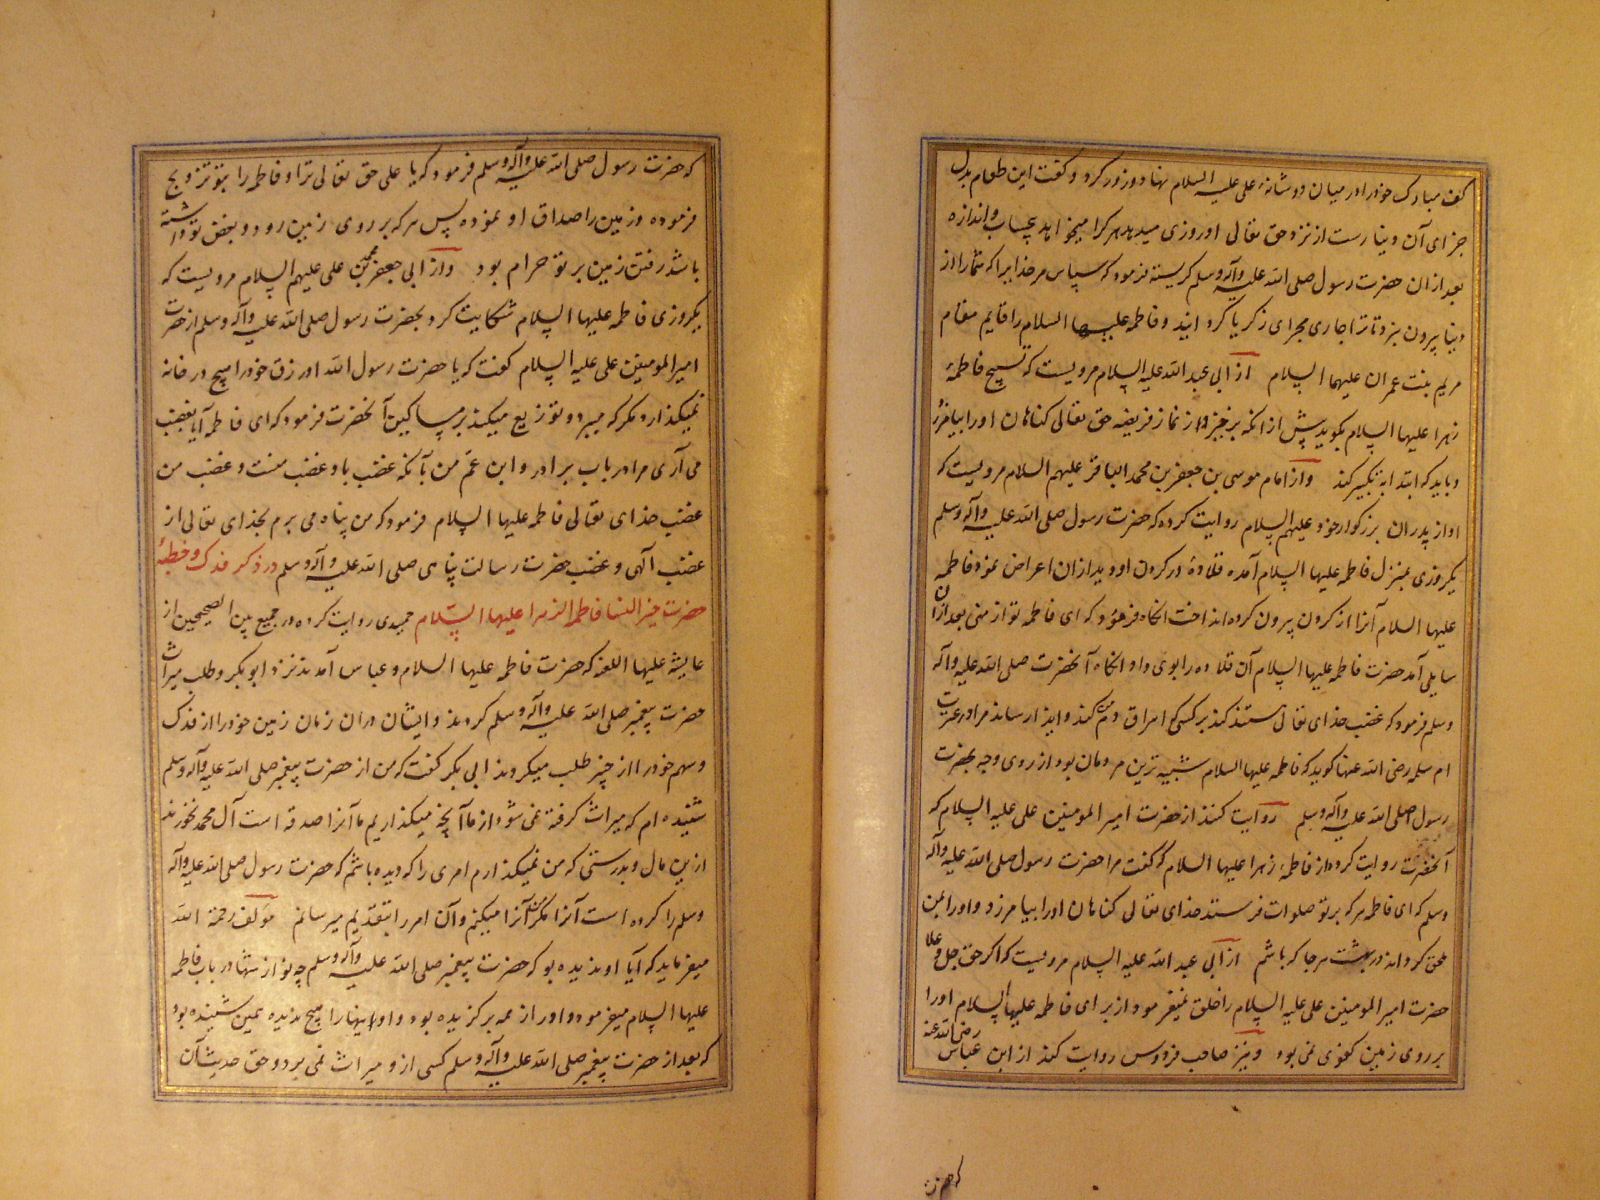 کف مبارک خود را در میان دو شانهٔ علی علیه السلام نهاد و زور کرد و گفت این طعام بدل
جزای آن دینارست از نزد حق تعالی او روزی میدهد هر کرا میخواهد بحساب و اندازه
بعد از ان حضرت رسول صلی الله علیه وآله وسلم کریسته فرمود که سپاس مر خدایرا که شما را از
دنیا بیرون نبرد تا ترا جاری مجرای زکریا کردانید و فاطمه علیها السلام را قایم مقام
مریم بنت عمران علیهما السلام از ابی عبد الله علیه السلام مرویست که تسبیح فاطمهٔ
زهرا علیها السلام بکوید پیش از انکه برخیزد از نماز فریضه حق تعالی کناهان او را بیامرزد
و باید که ابتدا بتکبیر کند و از امام موسی بن جعفر بن محمد الباقر علیهم السلام مرویست که
او از پدران بزرکوار خود علیهم السلام روایت کرده که حضرت رسول صلی الله علیه وآله وسلم
یکروزی بمنزل فاطمه علیها السلام آمده قلادهٔ در کردن او دید از ان اعراض نمود فاطمه
علیها السلام آنرا از کردن بیرون کرده انداخت انکاه فرمود که ای فاطمه تو از منی بعد از آن
سایلی آمد حضرت فاطمه علیها السلام آن قلاده را بوی داد انکاه آنحضرت صلی الله علیه وآله
وسلم فرمود که غضب خدای تعالی شتد کند بر کسی که اهراق دم من کند و ایذا رساند مرا در عترت
ام سلمه رضی الله عنها کوید که فاطمه علیها السلام شبیه ترین مردمان بود از روی وجه بحضرت
رسول صلی الله علیه وآله وسلم روایت کنند از حضرت امیر المومنین علی علیه السلام که
آنحضرت روایت کرده از فاطمهٔ زهرا علیها السلام که گفت مرا حضرت رسول صلی الله علیه وآله
وسلم که ای فاطمه هر که بر تو صلوات فرستد خدای تعالی کناهان او را بیامرزد و او را بمن
ملحق کرداند در بهشت هر جا که باشم از ابی عبد الله علیه السلام مرویست که اکر حق جل و علا
حضرت امیر المومنین علی علیه السلام را خلق نمیفرمود از برای فاطمه علیها السلام او را
بر روی زمین کفوی نمی بود و نیز صاحب فردوس روایت کند از ابن عباس رضی الله عنه
که حضرت
که حضرت رسول صلی الله علیه وآله وسلم فرمود که یا علی حق تعالی ترا و فاطمه را بتو تزویج
فرموده و زمین را صداق او نموده پس هر که بر روی زمین رود و بغض تو داشته
باشد رفتن زمین بر تو حرام بود و از ابی جعفر محمد بن علی علیهم السلام مرویست که
یکروزی فاطمه علیها السلام شکایت کرد بحضرت رسول صلی الله علیه وآله وسلم از حضرت
امیر المومنین علی علیه السلام گفت که یا حضرت رسول الله او رزق خود را هیچ در خانه
نمیکذارد مکر که میبرد و توزیع میکند بر مساکین آنحضرت فرمود که ای فاطمه آیا بغضب
می آری مرا در باب برادر و ابن عم من بآنکه غضب با و غضب منست و غضب من
غضب خدای تعالی فاطمه علیها السلام فرمود که من پناه می برم بخدای تعالی از
غضب آلهی و غضب حضرت رسالت پناهی صلی الله علیه وآله وسلم در ذکر فدک و خطبهٔ
حضرت خیر النسا فاطمه الزهرا علیها السلام حمیدی روایت کرده در جمع بین الصحیحین از
عایشه علیها اللعنه که حضرت فاطمه علیها السلام و عباس آمدند نزد ابو بکر و طلب میراث
حضرت پیغمبر صلی الله علیه وآله وسلم کردند و ایشان در ان زمان زمین خود را از فدک
و سهم خود را از خیبر طلب میکردند ابی بکر گفت که من از حضرت پیغمبر صلی الله علیه وآله وسلم
شنیده ام که میراث کرفته نمی شود از ما آنچه میکذاریم ما آنرا صدقه است آل محمد نخورند
ازین مال و بدرستی که من نمیکذارم امری را که دیده باشم که حضرت رسول صلی الله علیه وآله
وسلم را کرده است آنرا مکر که من آنرا میکنم و آن امر را بتقدیم میرسانم مؤلف رحمة الله
میفرماید که آیا او ندیده بود که حضرت پیغمبر صلی الله علیه وآله وسلم چه نوازشها در باب فاطمه
علیها السلام میفرمود و او را از همه برکزیده بود و او اینها را هیچ ندیده همین شنیده بود
که بعد از حضرت پیغمبر صلی الله علیه وآله وسلم کسی از و میراث نمی برد و حق حدیثان